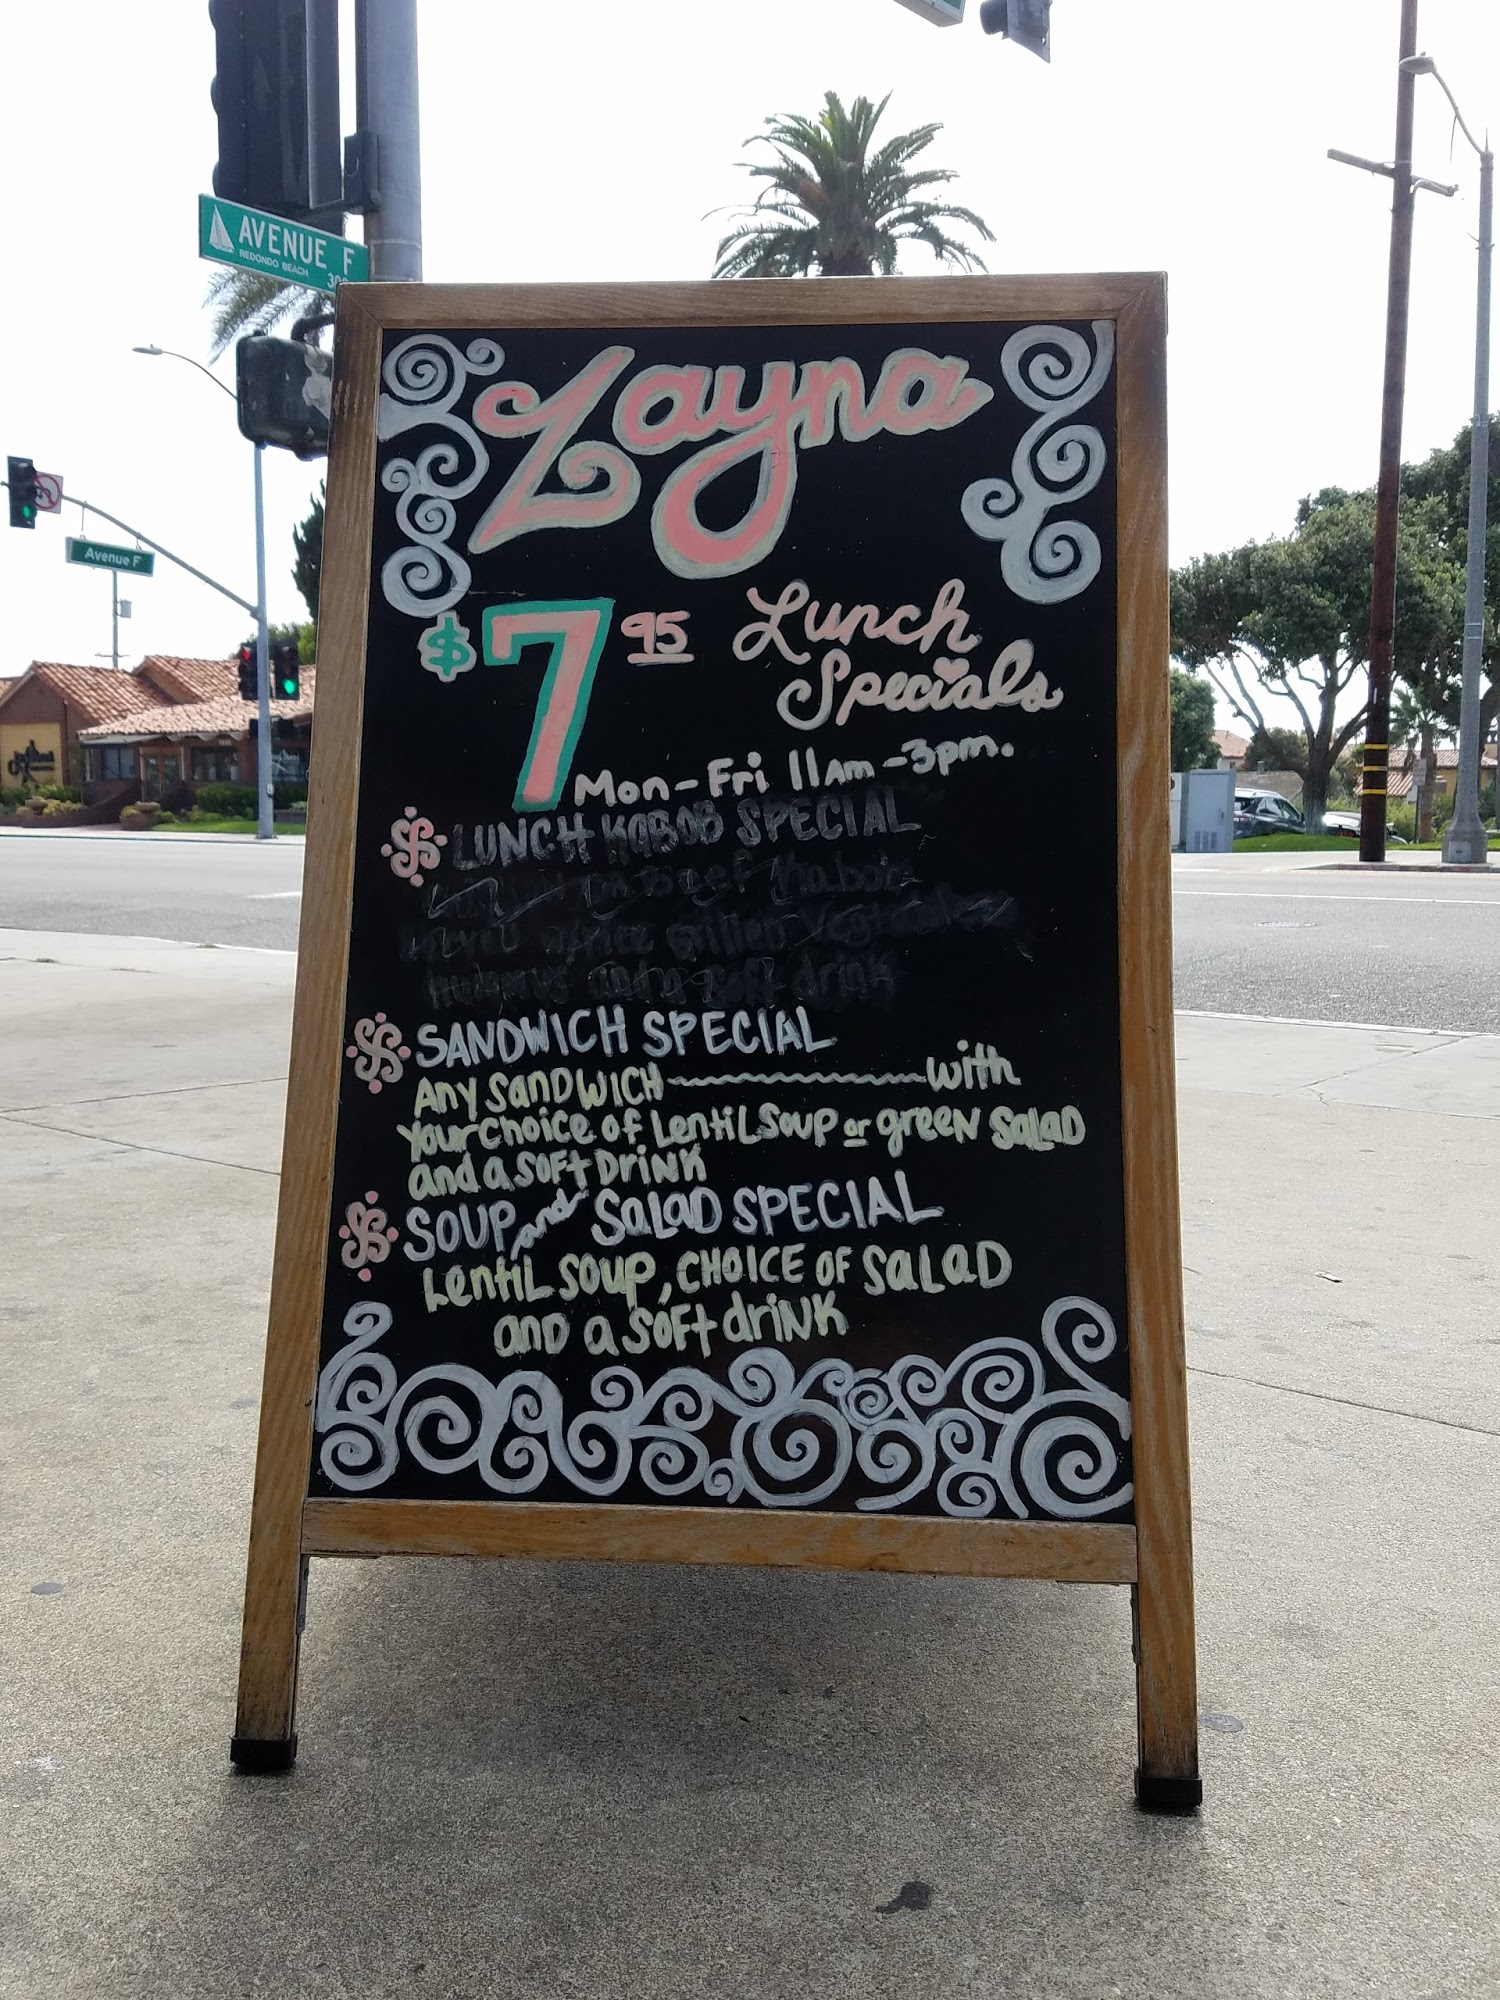 AVENUE F
REDONDO BEACH
Avenue F
Zayna
$7 95 Lunch
Specials
Mon-Fri 11Am-3pm.
LUNCH KABOB SPECIAL
Beef Kabob
rice grilled vegetables
hummus and a soft drink
SANDWICH SPECIAL
Any SanDWICH with
your choice of LentiL Soup or green SaLaD
and a SoFt DriNK
SOUP and SaLaD SPECIAL
LentiL Soup, CHOICE OF SaLaD
anD a SoFt driNK